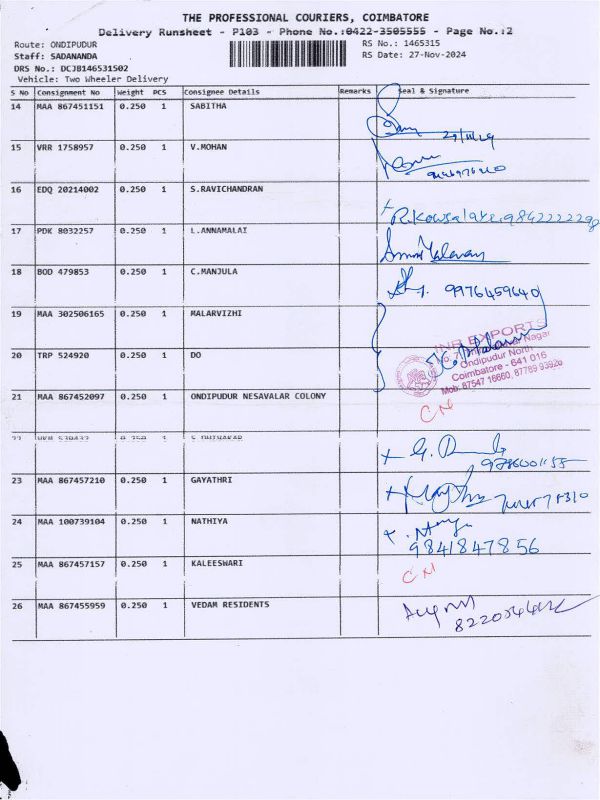 THE PROFESSIONAL COURIERS, COIMBATORE
Delivery Runsheet - P103 - Phone No.:0422-3505555 - Page No.:2
Route: ONDIPUDUR
RS No.: 1465315
Staff: SADANANDA
RS Date: 27-Nov-2024
DRS No.: DCJB146531502
Vehicle: Two Wheeler Delivery
S No Consignment No Weight PCS Consignee Details Remarks Seal & Signature
14 MAA 867451151 0.250 1 SABITHA
15 VRR 1758957 0.250 1 V.MOHAN
16 EDQ 20214002 0.250 1 S.RAVICHANDRAN
17 PDK 8032257 0.250 1 L.ANNAMALAI
18 BOD 479853 0.250 1 C.MANJULA
9976459640
19 MAA 302506165 1 0.250 MALARVIZHI
INR EXPORTS
Nagar
20 TRP 524920 0.250 1 DO
Ondipudur North
Coimbatore - 641 016
Mob: 87547 16660, 87789 93920
21 MAA 867452097 0.250 1 ONDIPUDUR NESAVALAR COLONY
CN
22 0.250 1
23 MAA 867457210 0.250 1 GAYATHRI
24 MAA 100739104 0.250 1 NATHIYA
9841847856
25 MAA 867457157 0.250 1 KALEESWARI
CN
26 MAA 867455959 0.250 1 VEDAM RESIDENTS